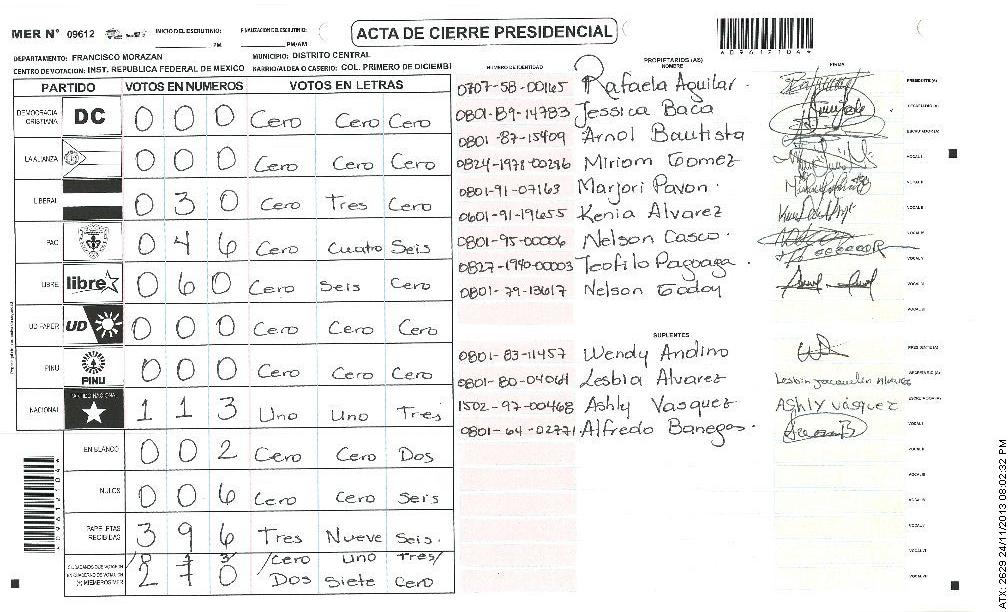 MER N° 09612 INICIO DEL ESCRUTINIO: PM FINALIZACION DEL ESCRUTINIO: PM/AM ACTA DE CIERRE PRESIDENCIAL
DEPARTAMENTO: FRANCISCO MORAZAN MUNICIPIO: DISTRITO CENTRAL
CENTRO DE VOTACION: INST. REPUBLICA FEDERAL DE MEXICO BARRIO/ALDEA O CASERIO: COL. PRIMERO DE DICIEMBI
PARTIDO VOTOS EN NUMEROS VOTOS EN LETRAS
DEMOCRACIA CRISTIANA DC 0 0 0 Cero Cero Cero
LA ALIANZA 0 0 0 Cero Cero Cero
LIBERAL 0 3 0 Cero Tres Cero
PAC 0 4 6 Cero Cuatro Seis
LIBRE libre 0 6 0 Cero Seis Cero
UD FAPER UD 0 0 0 Cero Cero Cero
PINU PINU 0 0 0 Cero Cero Cero
NACIONAL PARTIDO NACIONAL 1 1 3 Uno Uno Tres
EN BLANCO 0 0 2 Cero Cero Dos
NULOS 0 0 6 Cero Cero Seis
PAPELETAS RECIBIDAS 3 9 6 Tres Nueve Seis
/0 1 3/ /Cero uno Tres/
CIUDADANOS QUE VOTARON EN CUADERNO DE VOTACION (+) MIEMBROS MER 2 7 0 Dos Siete Cero
NUMERO DE IDENTIDAD PROPIETARIOS (AS) NOMBRE FIRMA
0707-58-00165 Rafaela Aguilar. PRESIDENTE(A)
0801-89-14783 Jessica Baca SECRETARIO (A)
0801-87-15409 Arnol Bautista ESCRUTADOR(A)
0824-1978-00286 Miriam Gomez VOCAL I
0801-91-07163 Marjori Pavon. VOCAL II
0601-91-19655 Kenia Alvarez VOCAL III
0801-95-00006 Nelson Casco. VOCAL IV
0827-1940-00003 Teofilo Pagoaga. VOCAL V
0801-79-13617 Nelson Godoy VOCAL VI
VOCAL VII
SUPLENTES
0801-83-11457 Wendy Andino PRESIDENTE(A)
0801-80-04061 Lesbia Alvarez Lesbia Jacquelin Alvarez SECRETARIO (A)
1502-97-00468 Ashly Vasquez Ashly vásquez ESCRUTADOR(A)
0801-64-02771 Alfredo Banegas. VOCAL I
VOCAL II
VOCAL III
VOCAL IV
VOCAL V
VOCAL VI
VOCAL VII
ATX: 2629 24/11/2013 08:02:32 PM